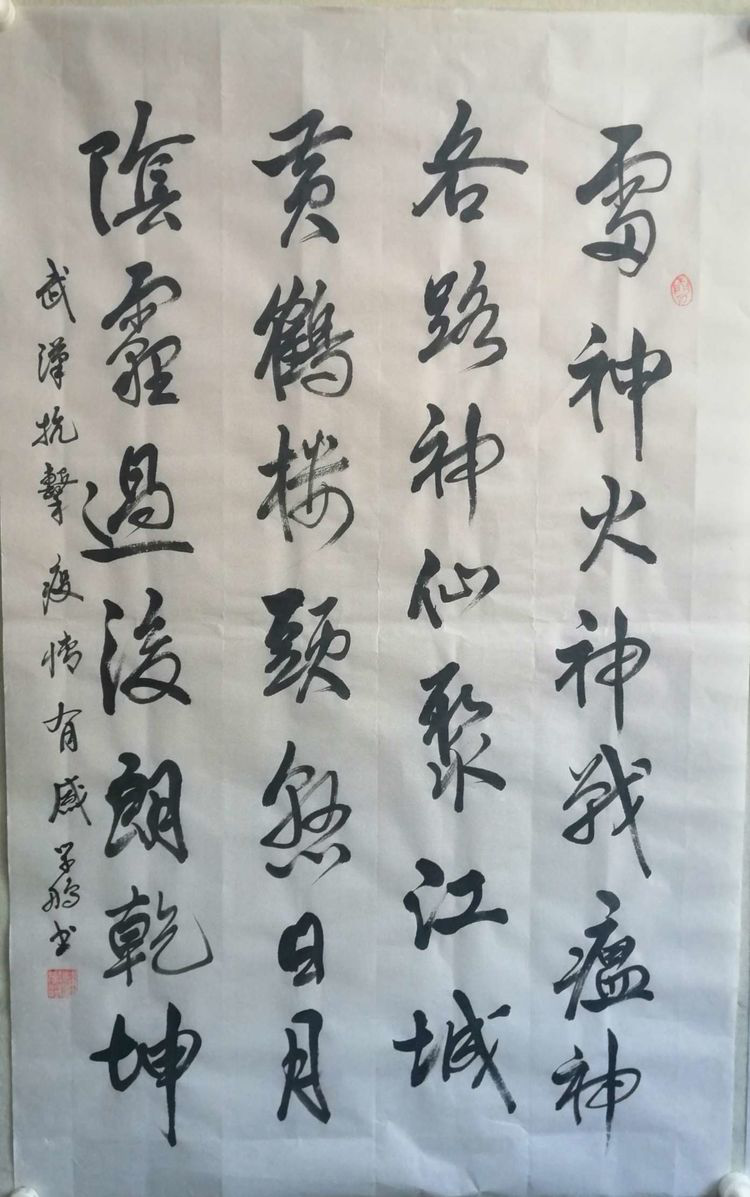 雷神火神戰瘟神
各路神仙聚江城
黄鶴楼頭懸日月
陰霾過後朗乾坤
武漢抗擊疫情有感 学鵬书